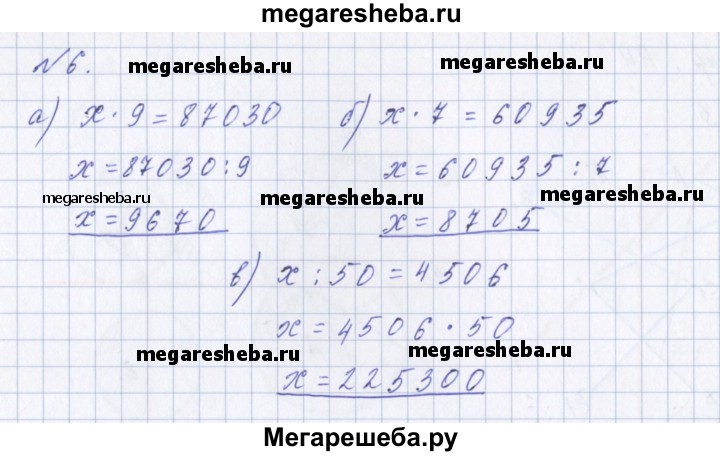 megaresheba.ru
№6. megaresheba.ru megaresheba.ru
а) x · 9 = 87030 б) x · 7 = 60935
x = 87030 : 9 x = 60935 : 7
megaresheba.ru megaresheba.ru megaresheba.ru
x = 9670 x = 8705
в) x : 50 = 4506
x = 4506 · 50
megaresheba.ru megaresheba.ru
x = 225300
Мегарешеба.ру